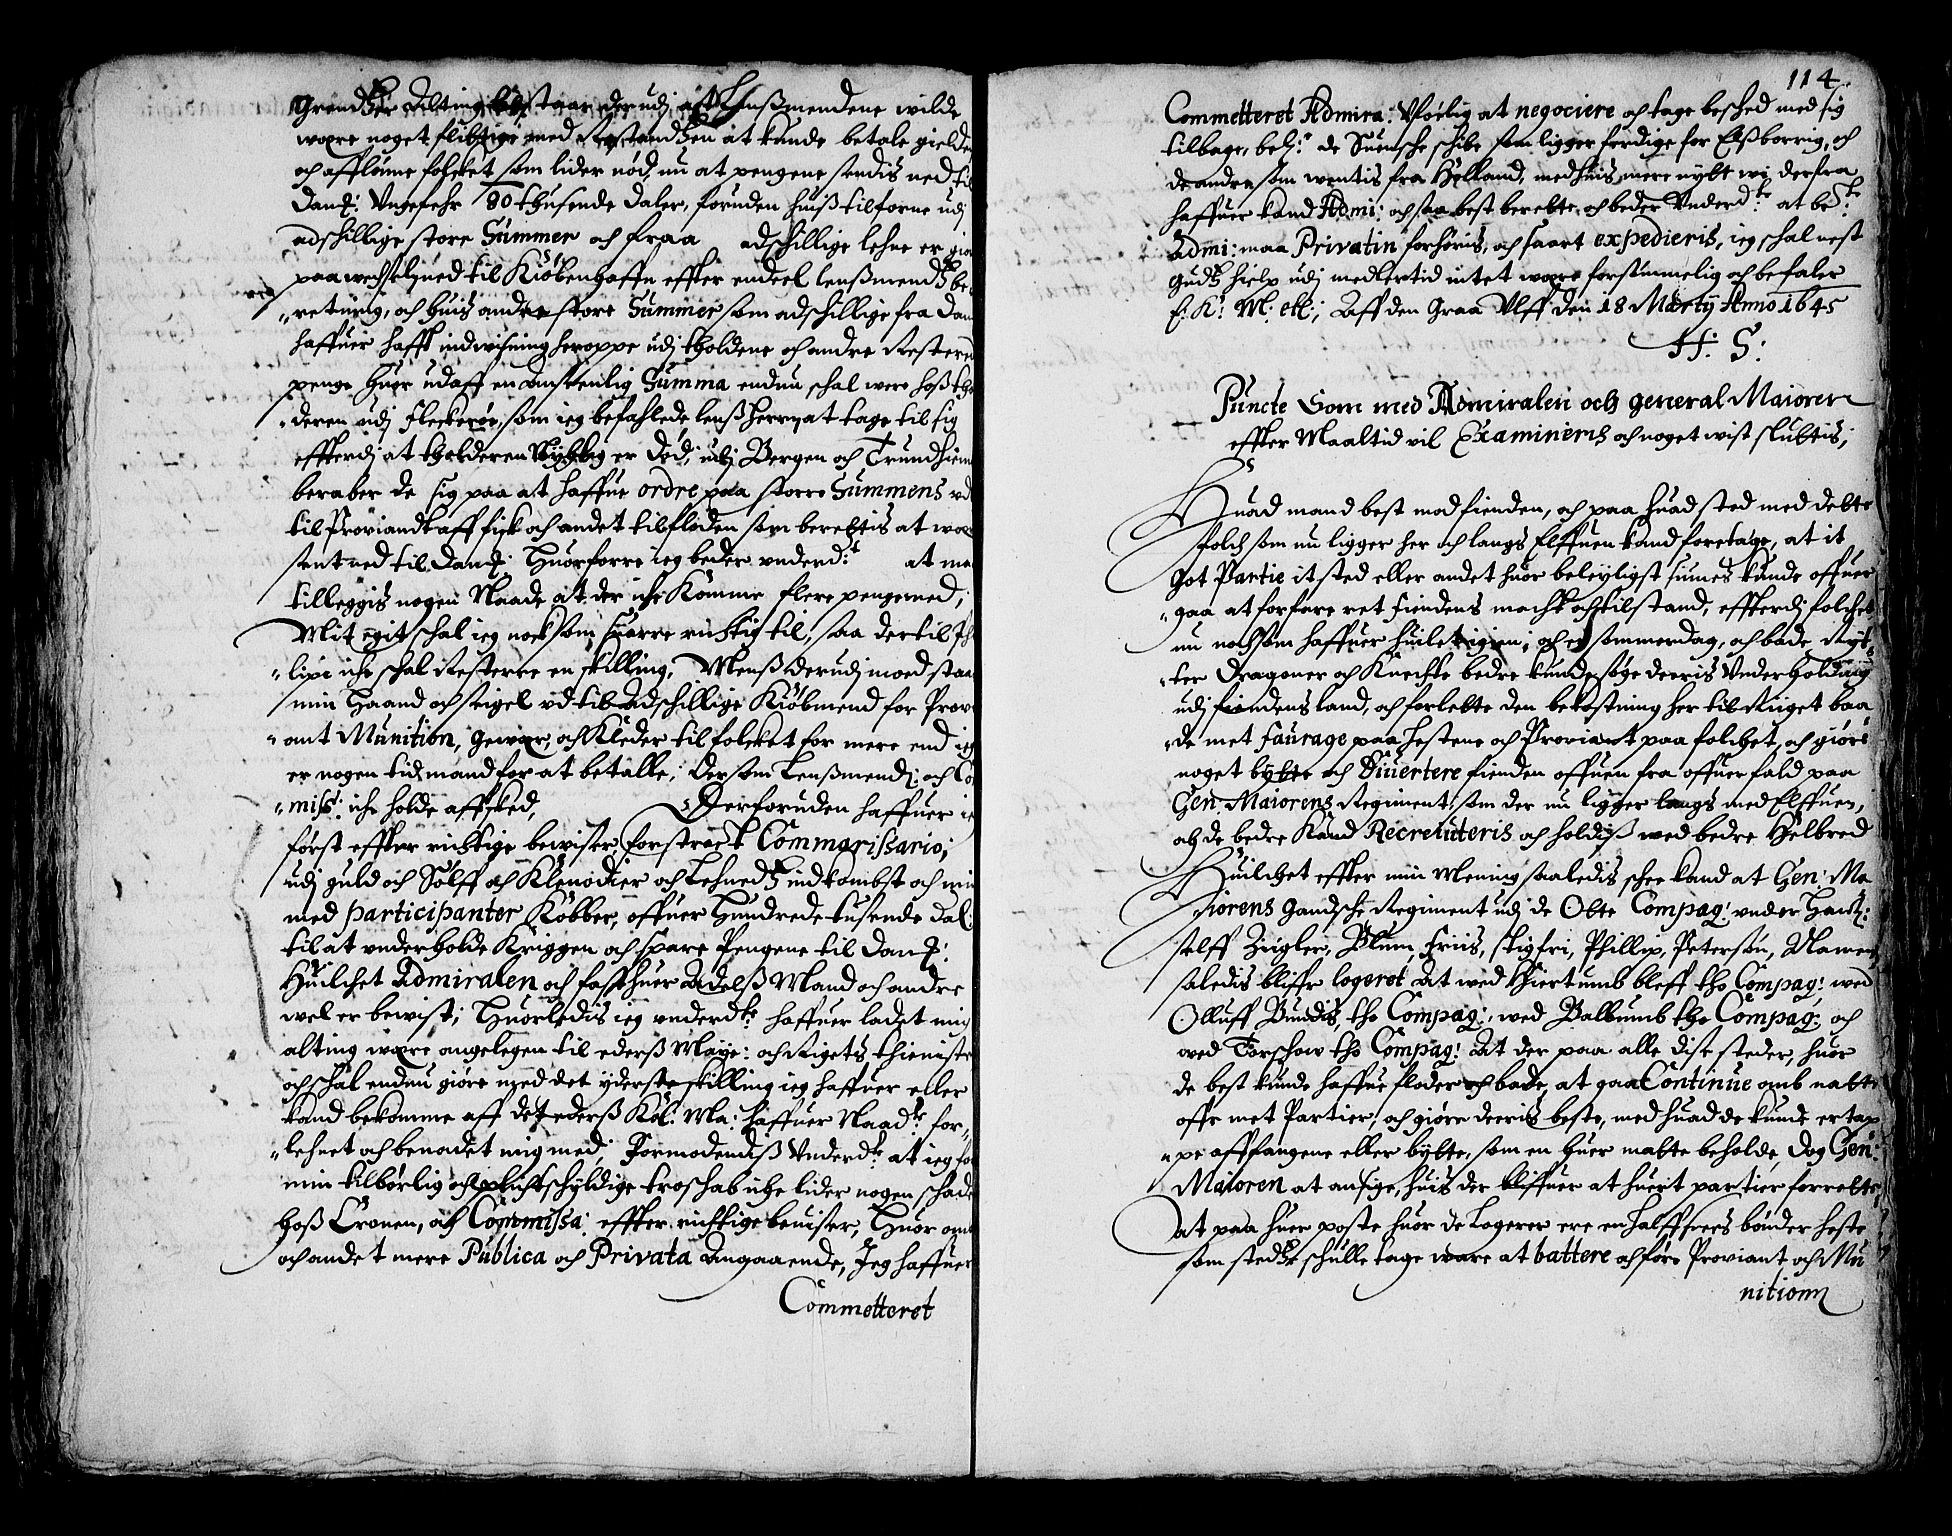 grendtzer Alting bestaar der udj at Lenßmendene wilde
wære noget flittige med Restandtzen at kunde betale gielde
och afflønne folcket som lider nød, nu at pengene sendis ned til
Danm: Ungefehr 80 thusende Daler, foruden huiß tilforne udj
adschillige store Summer och fraa adschillige lehne er giort
paa wechsel ned til Kiøbenhaffn effter endeel lenßmendz be-
retning, och huis andre store Summer som adschillige fra Danm
haffuer hafft indwisning heroppe udj tholdene och andre Resterende
penge huor udaff en anseenlig Summa endnu schal were hoß thol-
deren udj Fleckerøe, som ieg befahlede lenßherren at tage til sig
effterdj at tholderen er død, udj Bergen och Trundhiem
beraber de sig paa at haffue ordre paa store Summens ud
til Proviandt aff fisk och andet til floden som berettis at være
sent ned til Danm: Huorforre ieg beder underd:t at maa
tilleggis nogen Naade at der icke komme flere penge ned,
Mit egit schal ieg nock som suarre richtig til, saa der til Ph
lipi icke schal Restere en skilling, Menß derudj moed staar
min Haand och seigel ud til adschillige Kiøbmend for Provi
ant Munition, geweer, och Kleder til folcket for mere end ieg
er nogen tid mand for at betalle, Dersom Lenßmend: och Co
miss: icke holde affsked, Derforuden haffuer ieg
først effter richtige bewiser forstract Commarissario,
udj guld och Sølff och Klenodier och Lehnedtz indkombst och min
med participanter Kobber, offuer Hundrede tusende Dal:
til at underholde Kriggen och spare Pengene til Danm:
Huilchet Admiralen och fast huer Adelß Mand och andre
wel er bewist; Huorledis ieg underdte haffuer ladet mig
alting wære angelegen til ederß Maye: och Rigets thieniste
och schal endnu giøre med det yderste skilling ieg haffuer eller
kand bekomme aff det ederß Kol: Ma: haffuer Naad:te for-
lehnet och benadet mig med, Formodendiß Underdte at ieg for
min tilbørlig och plichtschyldige troschab icke lider nogen schade
hoß Cronen, och Commissa: effter richtige beuiser, Huor om
och andet mere Publica och Privata Angaaende, Jeg haffuer
Commetteret
114.
Commetteret Admira: Uføelig at negociere och tage besched med sig
tilbage, bel: de Suensche schibe som ligger ferdige for Elßborrig, och
de andre som wentis fra Holland, med huis mere nytt wi derfra
haffuer kand Admi: och saa best berette, och beder Underd:te at be:te
Admi: maa Privatin forhøris, och snart expedieris, ieg schal nest
gudtz hielp udj medlertid intet være forsummelig och befaler
E: K: M: etc; Aff den Graa Ulff den 18 Martij Anno 1645
H: S:
Puncte Som med Admiralen och general Maioren
effter Maaltid vil Examineris och noget wist sluttis;
Huad mand best mod fienden, och paa huad sted med dette
folch som nu ligger her och langs Elffuen kand foretage, at it
got Partie it sted eller andet huor beleyligst siunes kunde offuer
gaa at forfare ret fiendens macht och tilstand, effterdj folchet
nu noch som haffuer huilet igien, och er sommerdag, och bade Ryt-
ter Dragoner och Knechte bedre kunde søge deeris Underholdning
udj fiendens land, och forlette den bekostning her til Riiget baa
de met faurage paa Hestene och Proviant paa folchet, och giøre
noget bytte och Divertere fienden offuen fra offuerfald paa
Gen: Maiorens Regiment, som der nu ligger langs med Elffuen,
at de bedre Kand Recreuteris och holdiß wed bedre Helbred
Huilchet effter min Mening saaledis schee kand at Gen: Ma
iorens gandsche Regiment udj de Otte Compag: under Hans:
selff Ziigler, Blum, Friis, Stigfri, Phillip, Petersøn, Nawen
saledis bliffr logeret At wed Hiertumb bleff tho Compag: wed
Olluff Bundis, tho Compag:, wed Balbumb tho Compag: och
wed Torschow tho Compag: At der paa alle dise steder, huor
de best kunde haffue floder och bade, at gaa Continue omb natte
offr met Partier, och giøre deeris beste, med huad de kunde ertap
pe aff fangene eller bytte, som en huer matte beholde, dog Gen:
Maioren at ansige, huis der bliffuer at huert partier forrette,
At paa huer poste huor de Logerer ere en halffsneeß bønder heste
som stedtze schulle tage ware at battere och føre Proviant och Mu
nitionn